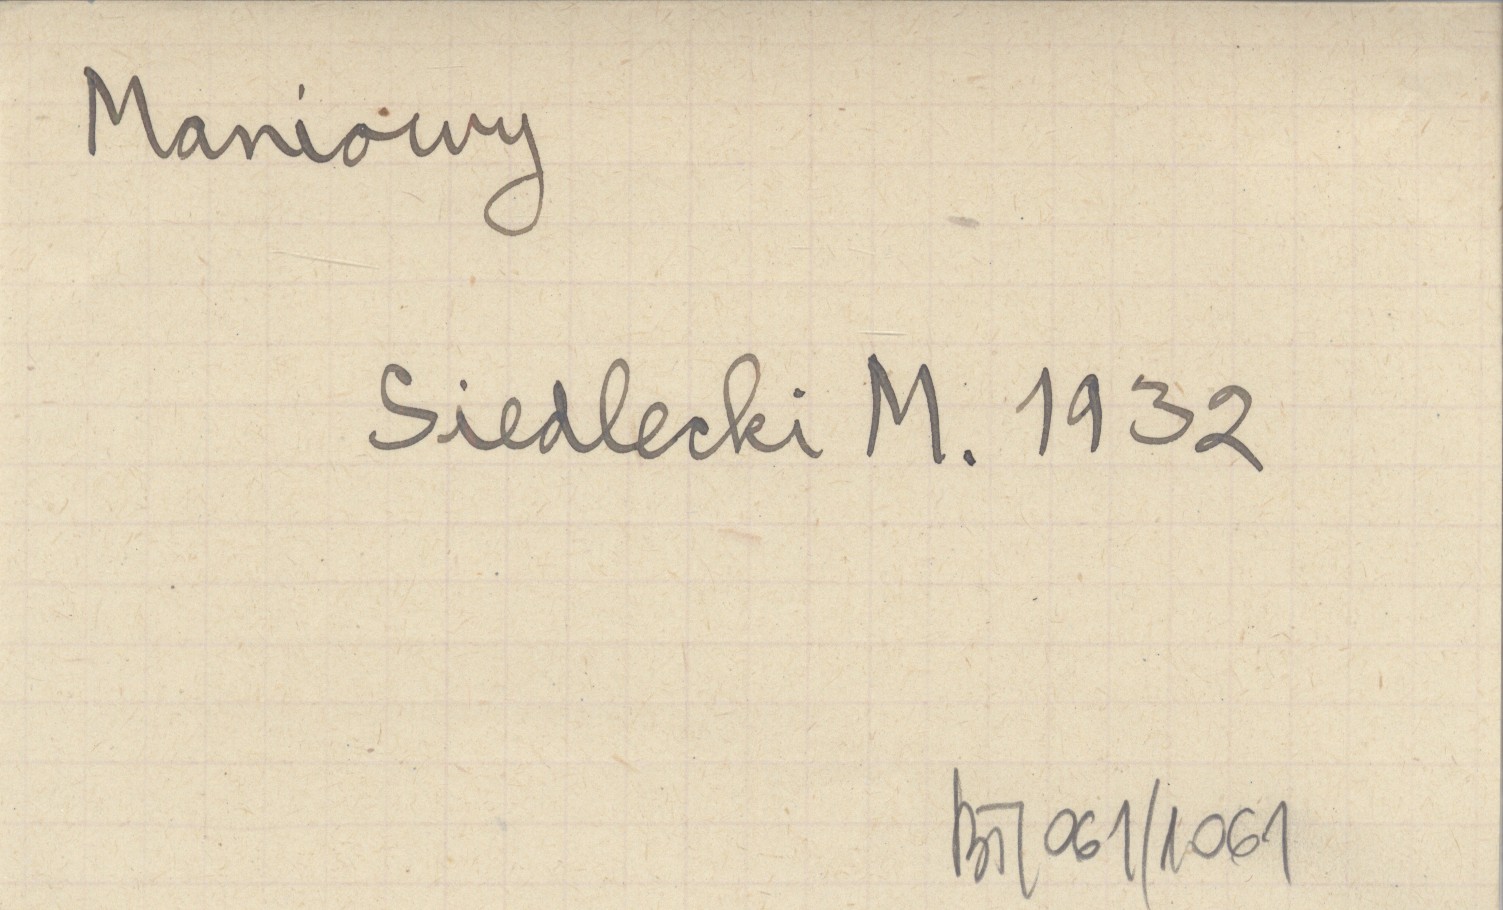 Maniowy
Siedlecki M. 1932
061/1061